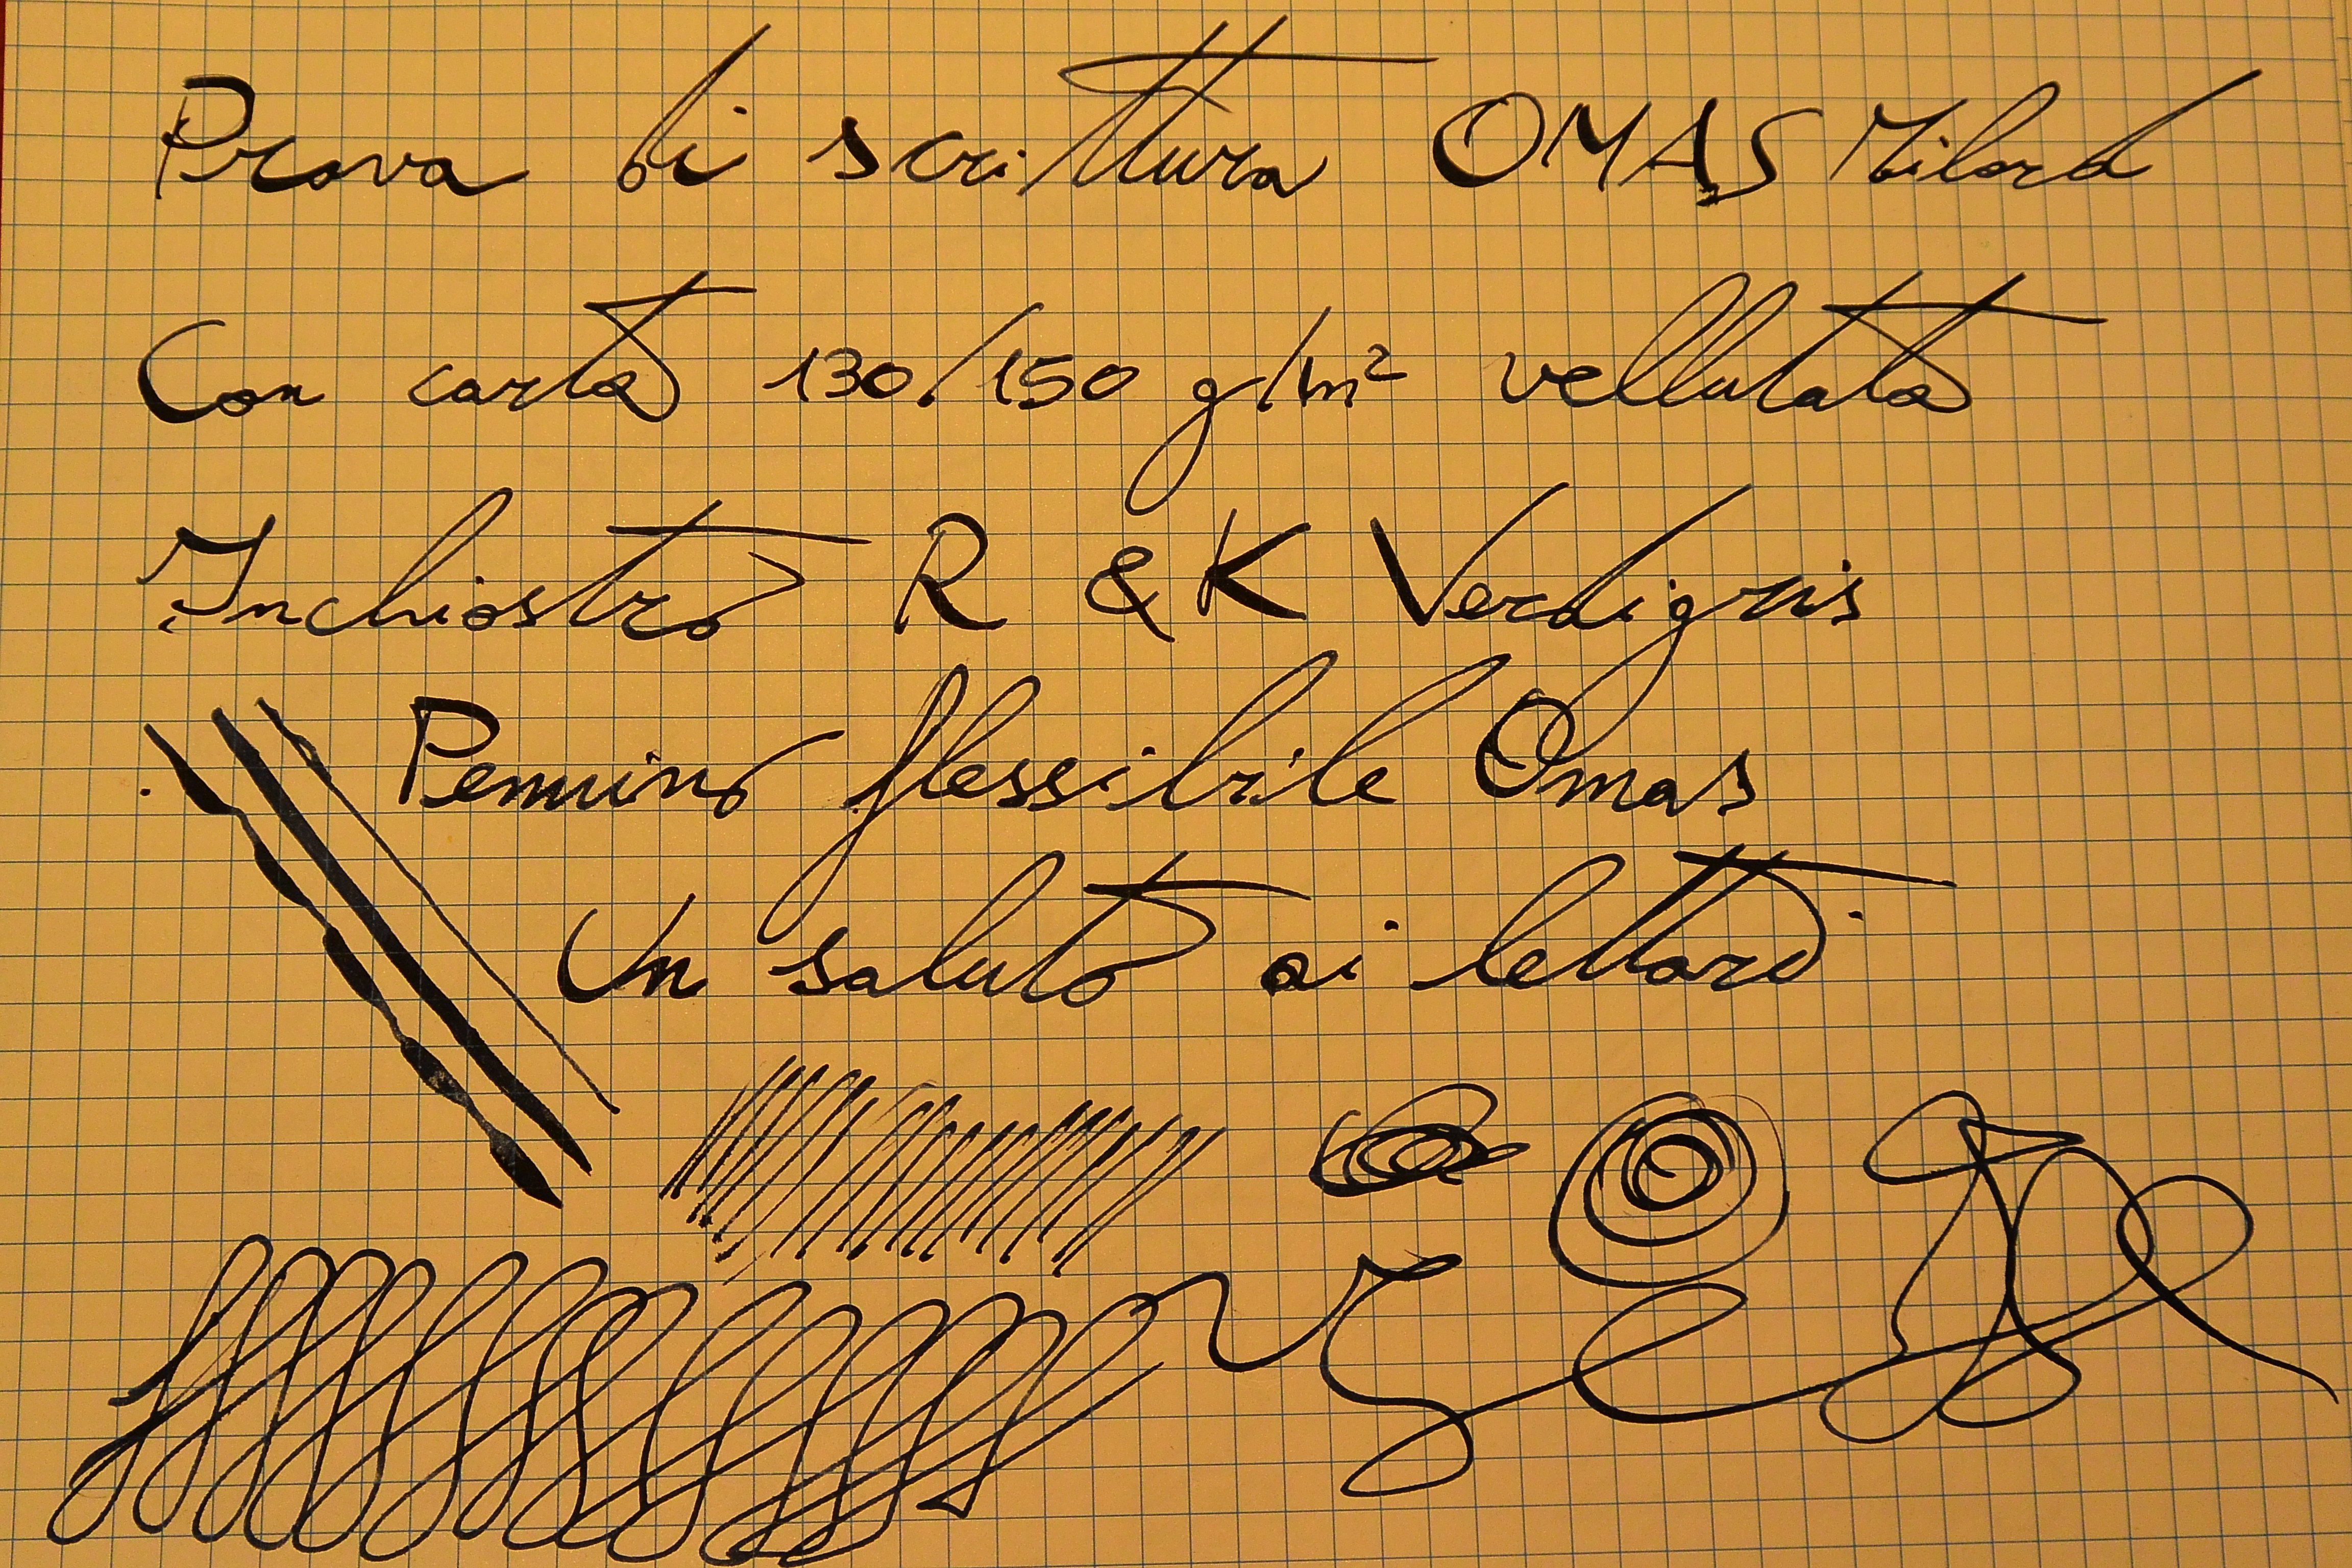 Prova di scrittura OMAS Milord
Con carta 130/150 g/m² vellutata
Inchiostro R & K Verdigris
Pennino flessibile Omas
Un saluto ai lettori